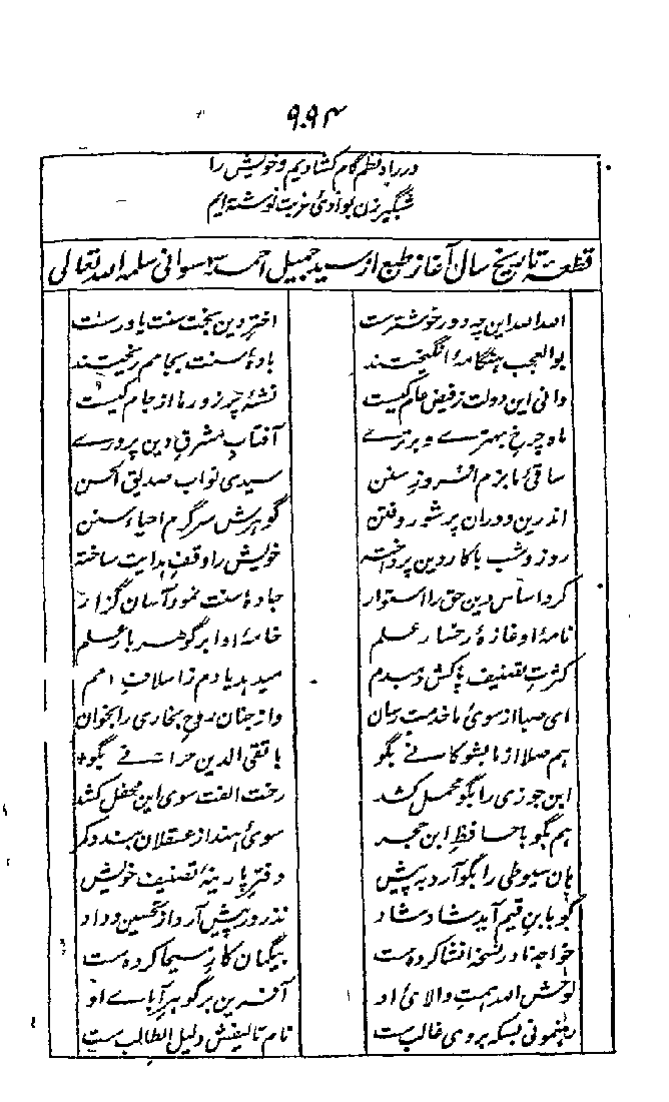 ۹۹۴
در راه نظم گام کشادیم و خویش را
شبگیر زن بوادی غربت نوشته ایم
قطعۂ تاریخ سال آغاز طبع از سید جمیل احمد سہسوانی سلمہ اللہ تعالی
اللہ اللہ این چہ دور خوشترست اختر دین بخت سنت یاورست
بوالعجب ہنگامۂ انگیختند بادۂ سنت بجامم ریختند
دانی این دولت ز فیض عام کیست نشۂ پرزور ما از جام کیست
ماہ چرخ بہترے و برترے آفتاب مشرق دین پرورے
ساقی ما بزم افروز سنن سیدی نواب صدیق الحسن
اندرین دوران پرشور و فتن گوہرش سرگرم احیاء سنن
روز و شب با کار دین پرداختہ خویش را وقف ہدایت ساختہ
کرد اساس دین حق را استوار جادۂ سنت نمود آسان گزار
نامۂ او غازۂ رخسار علم خامۂ او ابر گوہر بار علم
کثرت تصنیف پاکش دمبدم میدہد یادم ز اسلاف امم
ای صبا از سوی ما خدمت رسان واز جنان روح بخاری را بخوان
ہم صلا از ما بشوکانے بگو با تقی الدین حرانے بگو
ابن جوزی را بگو محمل کشد رخت الفت سوی این محفل کشد
ہم بگو با حافظ ابن حجر سوئ ہند از عسقلان بندد کمر
ہان سیوطی را بگو آرد بہ پیش دفتر پارینۂ تصنیف خویش
گو بابن قیم آید شاد شاد نذر ور پیش آرد از تحسین و داد
خواجہ نادر نسخہ انشا کردہ است بیگمان کار مسیحا کردہ است
لوحش اللہ ہمت والای او آفرین بر گوہر آبای او
رہنمونی بسکہ بر وی غالب ست نام تالیفش دلیل الطالب ست